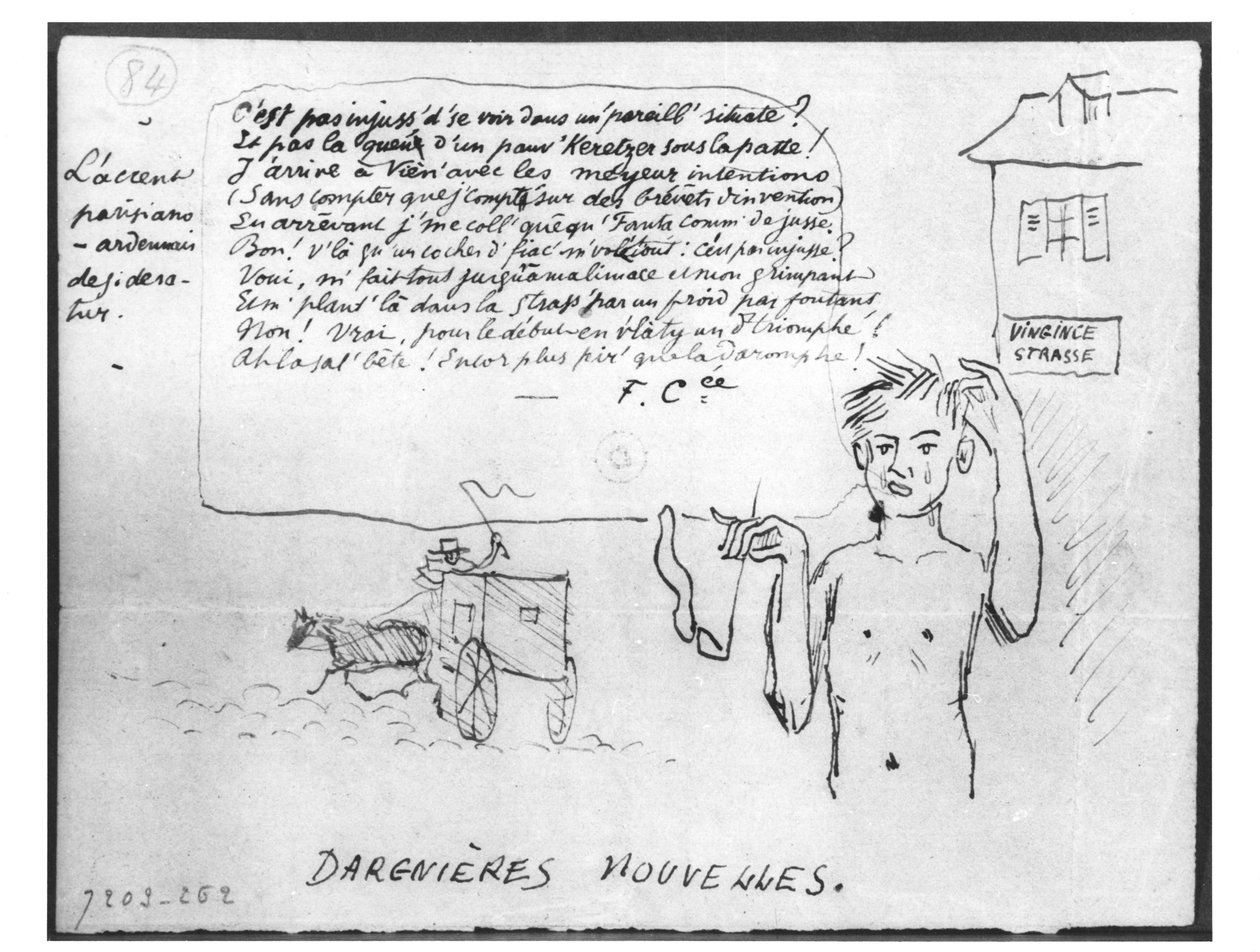 84
L'accent
parisiano
- ardennais
desidera-
tur.
C'est pas injuss' d'se voir dans un' pareill' situate?
Et pas la queue d'un pauv' Keretzer sous la patte!
J'arrive à Vièn' avec les meyeur intentions
(Sans compter que j'compte sur des brévèts d'invention)
En arrêvant j'me coll' quéqu' Fanta comm' de jusse.
Bon! V'là qu'un cocher d'fiac' m'vol' tout: c'est pas injusse?
Voui, m'fait tout jusqu'à ma limace et mon grimpant
Et m'plant' là dans la Strass' par un froid pas foutant.
Non! Vrai, pour le début en v'là ty un d'triomphe!
Ah la sal' bête! Encor plus pir' que la daromphe!
F. Cée
VINGINCE
STRASSE
DARGNIÈRES NOUVELLES.
7203-262